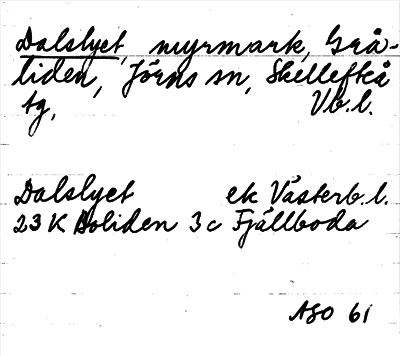 Dalslyet, myrmark, Grå-
liden, Jörns sn, Skellefteå
tg, Vb. l.
Dalslyet ek Västerb. l.
23 K Boliden 3 c Fjällboda
ASO 61